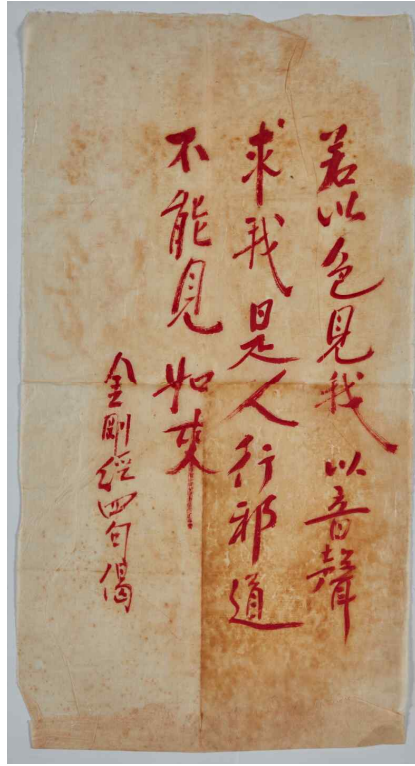 若以色見我以音聲
求我是人行邪道
不能見如來
金剛經四句偈